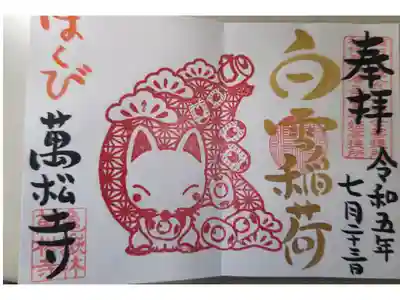 奉拝
令和五年
七月二十三日
白雪稲荷
はくび
萬松寺